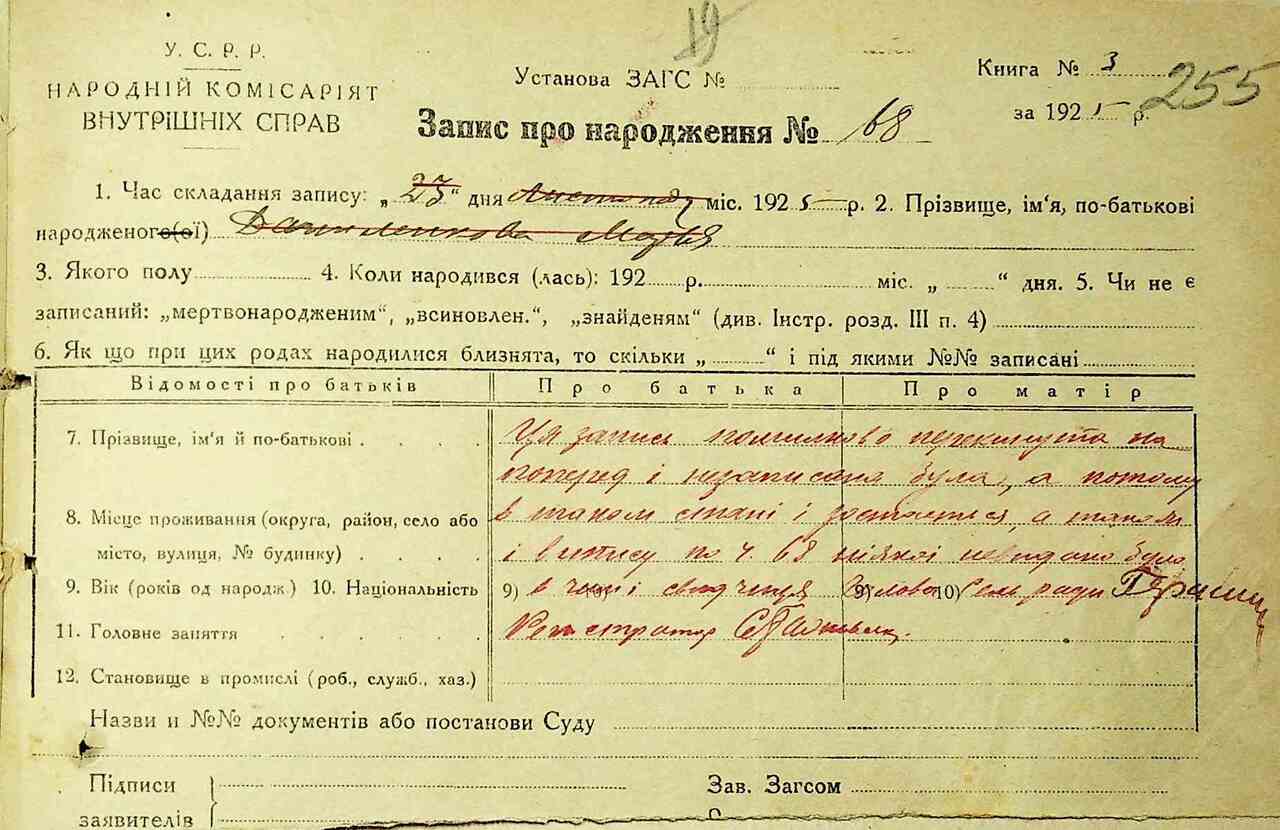 19
У. С. Р. Р.
НАРОДНІЙ КОМІСАРІЯТ
ВНУТРІШНІХ СПРАВ
Установа ЗАГС №
Книга № 3
255
за 1925 р.
Запис про народження № 68
1. Час складання запису: „ 23 “ дня Листопад міс. 1925 р. 2. Прізвище, ім'я, по-батькові
народженого(ої) Даниленкова Марія
3. Якого полу 4. Коли народився (лась): 192 р. міс. „ “ дня. 5. Чи не є
записаний: „мертвонародженим“, „всиновлен.“, „знайденям“ (див. Інстр. розд. III п. 4)
6. Як що при цих родах народилися близнята, то скільки „ “ і під якими №№ записані
Відомості про батьків Про батька Про матір
7. Прізвище, ім'я й по-батькові
Ця запись помилково перекинута на
поперед і незаписана була, а потому
8. Місце проживання (округа, район, село або
в таком стані і остається, а таком
місто, вулиця, № будинку)
і випису по ч. 68 ніякої невидано було
9. Вік (років од народж.) 10. Національність 9) 9) 10)
в чим і свидчемця Голова Сельради
11. Головне заняття
Регистратор
12. Становище в промислі (роб., служб., хаз.)
Назви и №№ документів або постанови Суду
Підписи
заявителів
Зав. Загсом